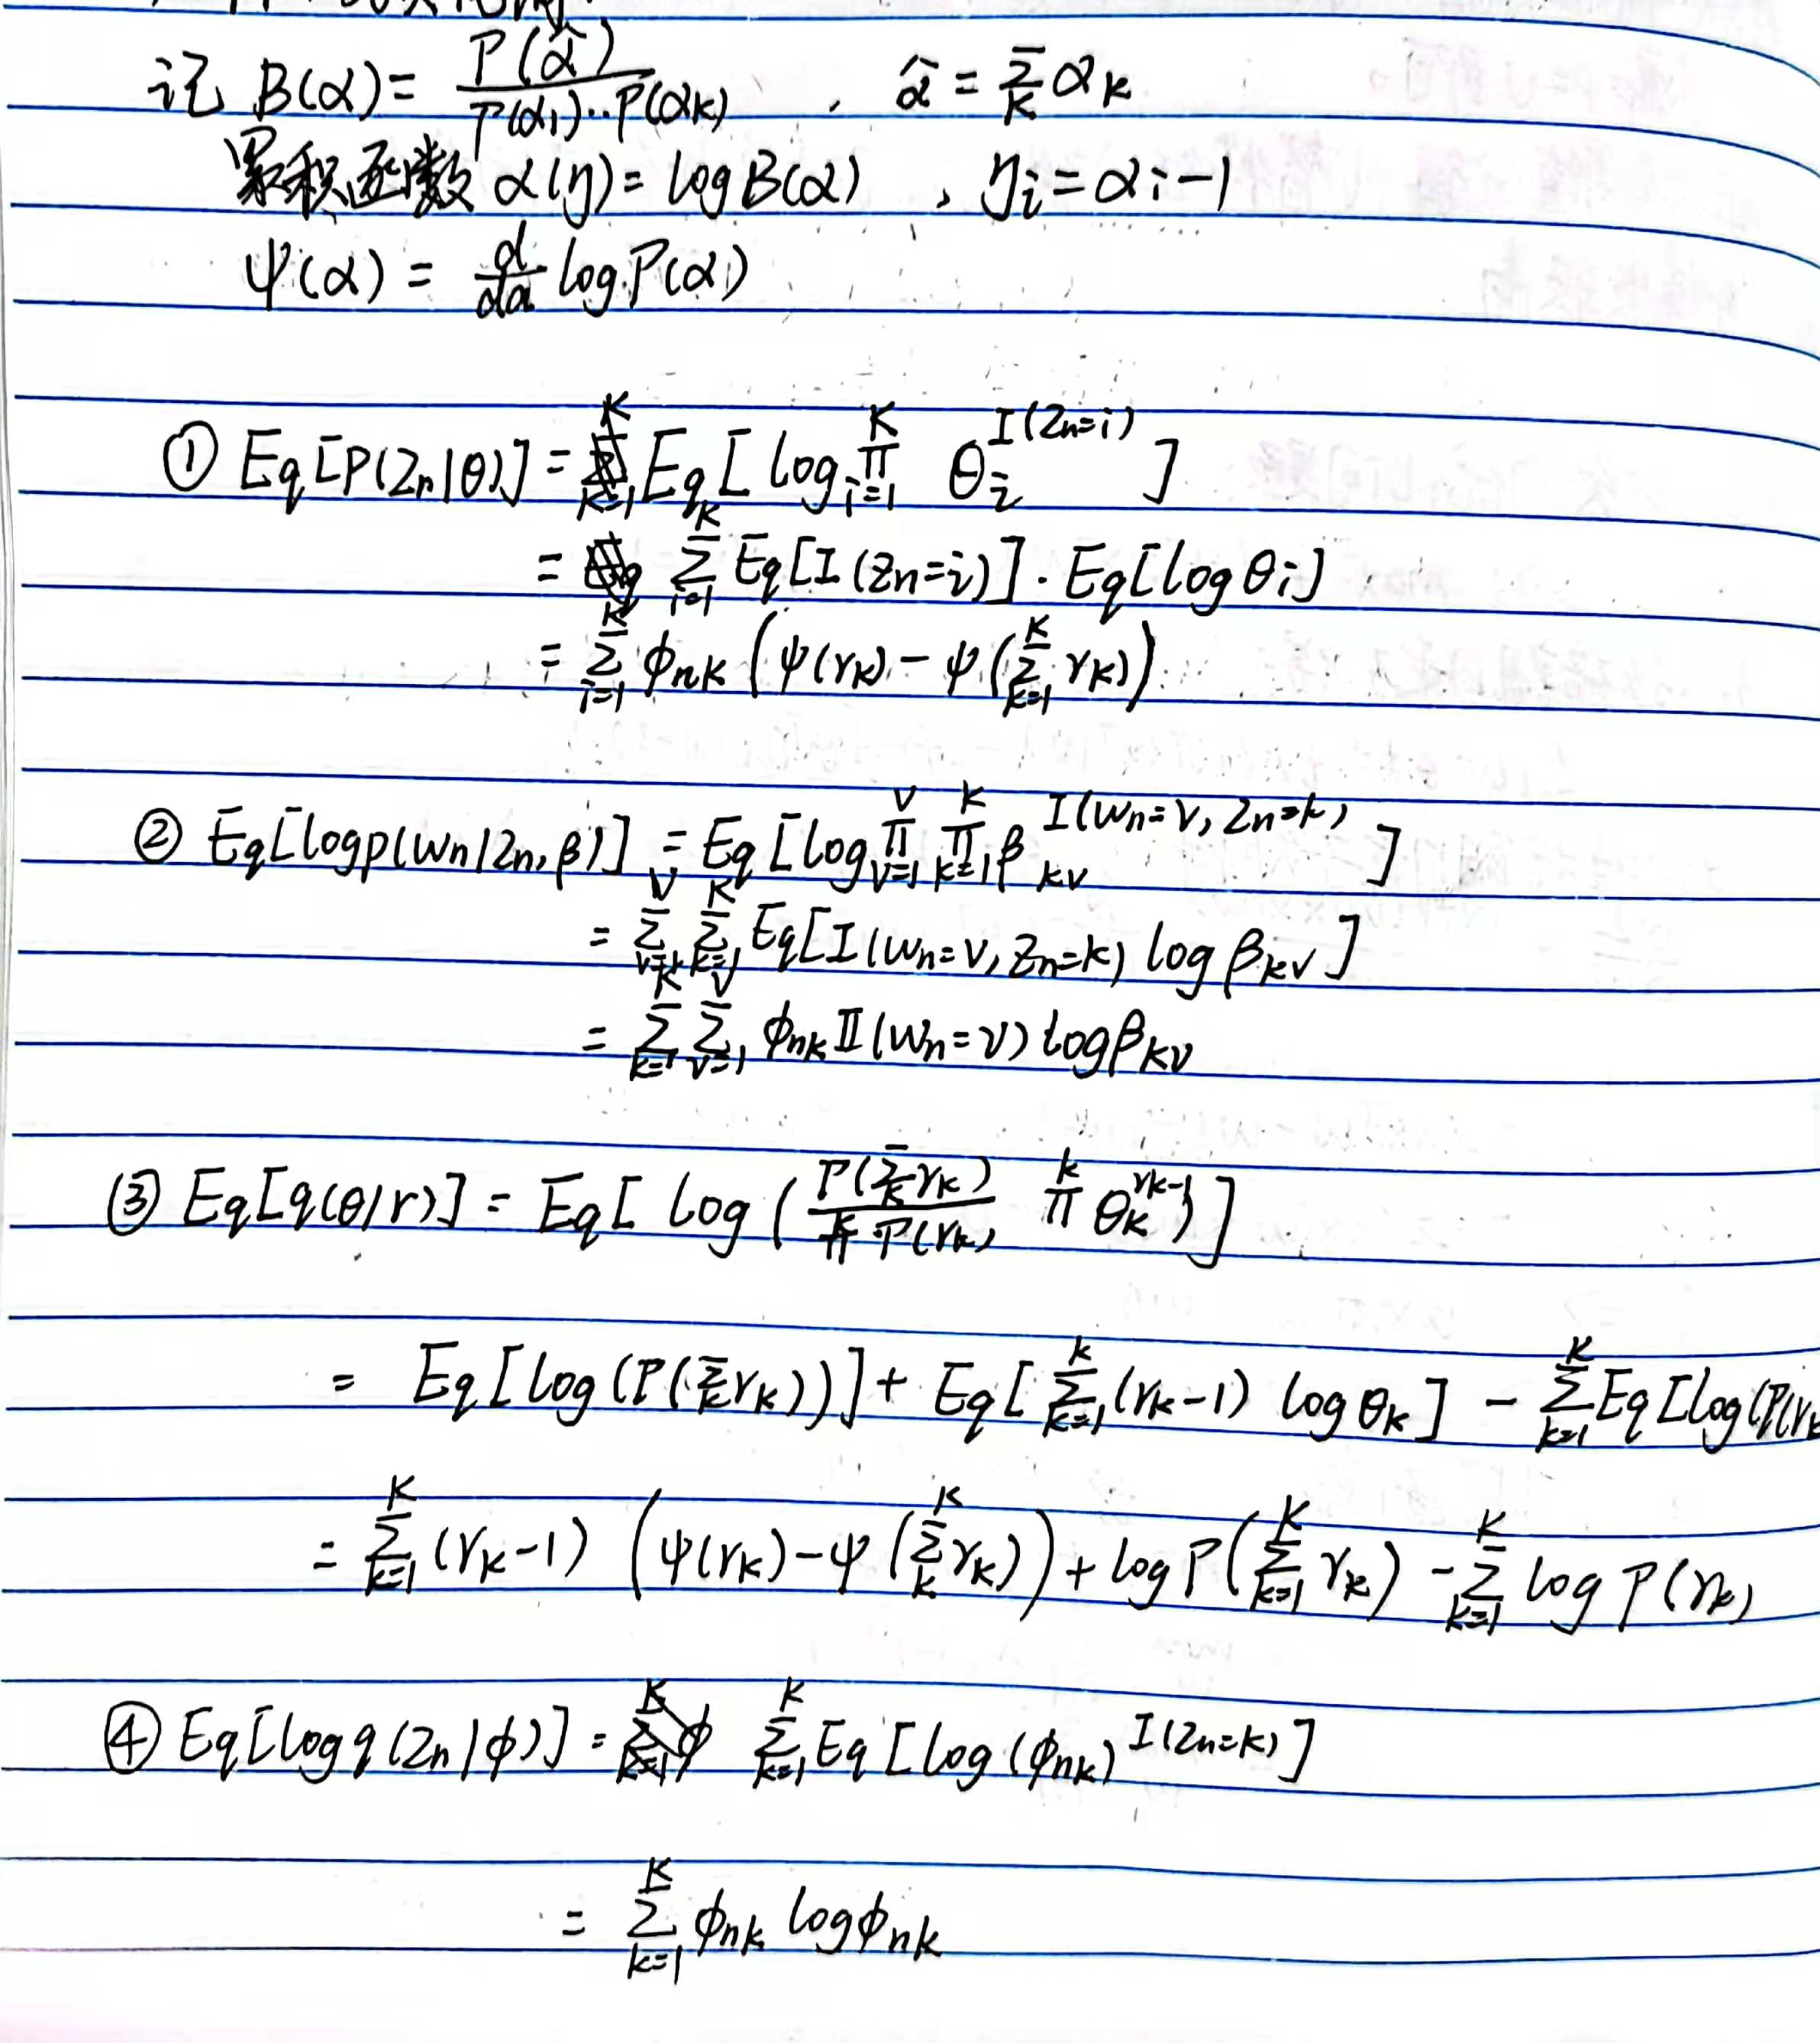 记 B(α) = Γ(α̂) / Γ(α₁)··Γ(αk) , α̂ = Σ_k αk
累积函数 α(η) = log B(α) , ηi = αi - 1
ψ(α) = d/dα log Γ(α)
① Eq[P(Zn|θ)] = Eq[log ∏_{i=1}^{K} θi^{I(Zn=i)}]
= Σ_{i=1}^{K} Eq[I(Zn=i)] · Eq[log θi]
= Σ_{i=1}^{K} ϕnk (ψ(γk) - ψ(Σ_{k=1}^{K} γk))
② Eq[log p(Wn|Zn, β)] = Eq[log ∏_{v=1}^{V} ∏_{k=1}^{K} βkv^{I(Wn=v, Zn=k)}]
= Σ_{v=1}^{V} Σ_{k=1}^{K} Eq[I(Wn=v, Zn=k) log βkv]
= Σ_{k=1}^{K} Σ_{v=1}^{V} ϕnk 𝕀(Wn=v) log βkv
③ Eq[q(θ|γ)] = Eq[log (Γ(Σ_k γk) / ∏^{K} Γ(γk) ∏^{K} θk^{γk-1})]
= Eq[log(Γ(Σ_k γk))] + Eq[Σ_{k=1}^{K} (γk-1) log θk] - Σ_{k=1}^{K} Eq[log(Γ(γk
= Σ_{k=1}^{K} (γk-1) (ψ(γk) - ψ(Σ_k^{K} γk)) + log Γ(Σ_{k=1}^{K} γk) - Σ_{k=1}^{K} log Γ(γk)
④ Eq[log q(Zn|ϕ)] = Σ_{k=1}^{K} Eq[log (ϕnk)^{I(Zn=k)}]
= Σ_{k=1}^{K} ϕnk log ϕnk